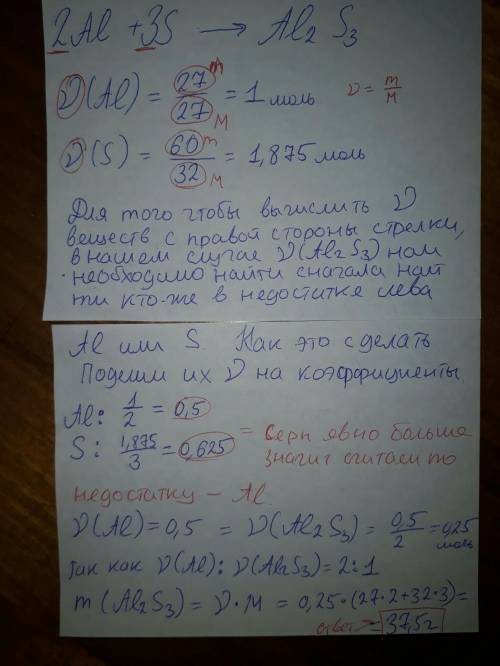 2Al + 3S → Al2 S3
ν(Al) = 27 m / 27 M = 1 моль ν = m/M
ν(S) = 60 m / 32 M = 1,875 моль
Для того чтобы вычислить ν
веществ с правой стороны стрелки,
в нашем случае ν(Al2S3) нам
необходимо найти сначала най
ти кто-же в недостатке слева
Al или S. Как это сделать
Поделим их ν на коэффициенты.
Al: 1/2 = 0,5
S: 1,875/3 = 0,625 = Серы явно больше
значит считаем по
недостатку – Al
ν(Al) = 0,5 = ν(Al2S3) = 0,5/2 = 0,25 моль
так как ν(Al) : ν(Al2S3) = 2:1
m(Al2S3) = ν·M = 0,25·(27·2+32·3) =
ответ = 37,5г